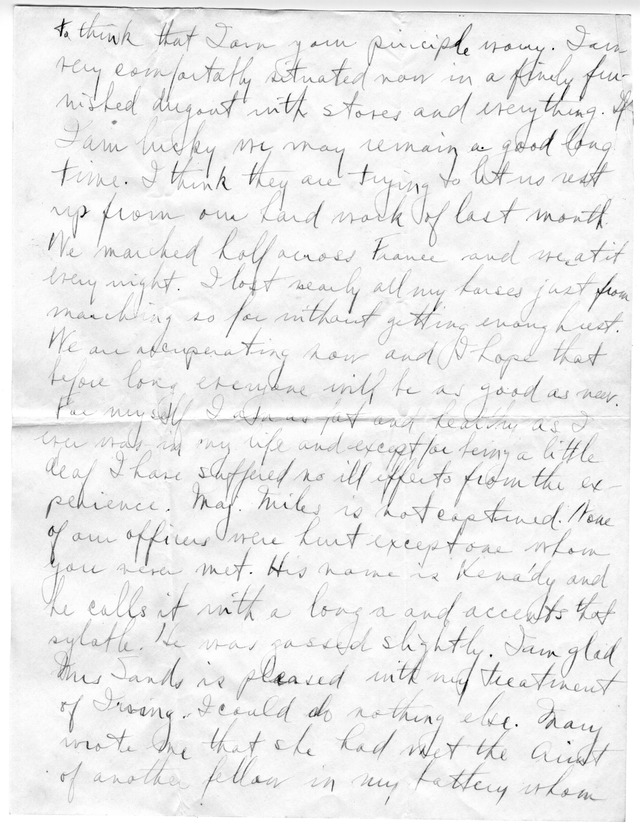 to think that I am your principle worry. I am
very comfortably situated now in a finely fur-
nished dugout with stoves and everything. If
I am lucky we may remain a good long
time. I think they are trying to let us rest
up from our hard work of last month.
We marched half across France and we at it
every night. I lost nearly all my horses just from
marching so far without getting enough rest.
We are recuperating now and I hope that
before long everyone will be as good as new.
For myself I am as fat and healthy as I
ever was in my life and except for being a little
deaf I have suffered no ill effects from the ex-
perience. Maj. Miles is not captured. None
of our officers were hurt except one whom
you never met. His name is Kenady and
he calls it with a long a and accents that
sylable. He was gassed slightly. I am glad
Mrs Sands is pleased with my treatment
of Irving. I could do nothing else. Mary
wrote me that she had met the Aunt
of another fellow in my battery whom